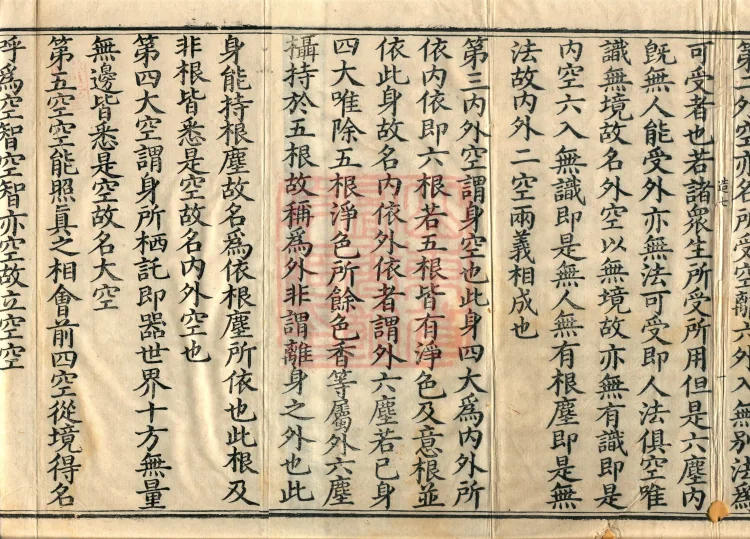 第二外空亦名所受空離六外入無別法為
造七
可受者也若諸衆生所受所用但是六塵内
旣無人能受外亦無法可受即人法俱空唯
識無境故名外空以無境故亦無有識即是
内空六入無識即是無人無有根塵即是無
法故内外二空兩義相成也
第三内外空謂身空也此身四大為内外所
依内依即六根若五根皆有淨色及意根並
依此身故名内依外依者謂外六塵若己身
四大唯除五根淨色所餘色香等屬外六塵
攝持於五根故稱為外非謂離身之外也此
身能持根塵故名為依根塵所依也此根及
非根皆悉是空故名内外空也
第四大空謂身所栖託即器世界十方無量
無邊皆悉是空故名大空
第五空空能照真之相會前四空從境得名
呼為空智空智亦空故立空空